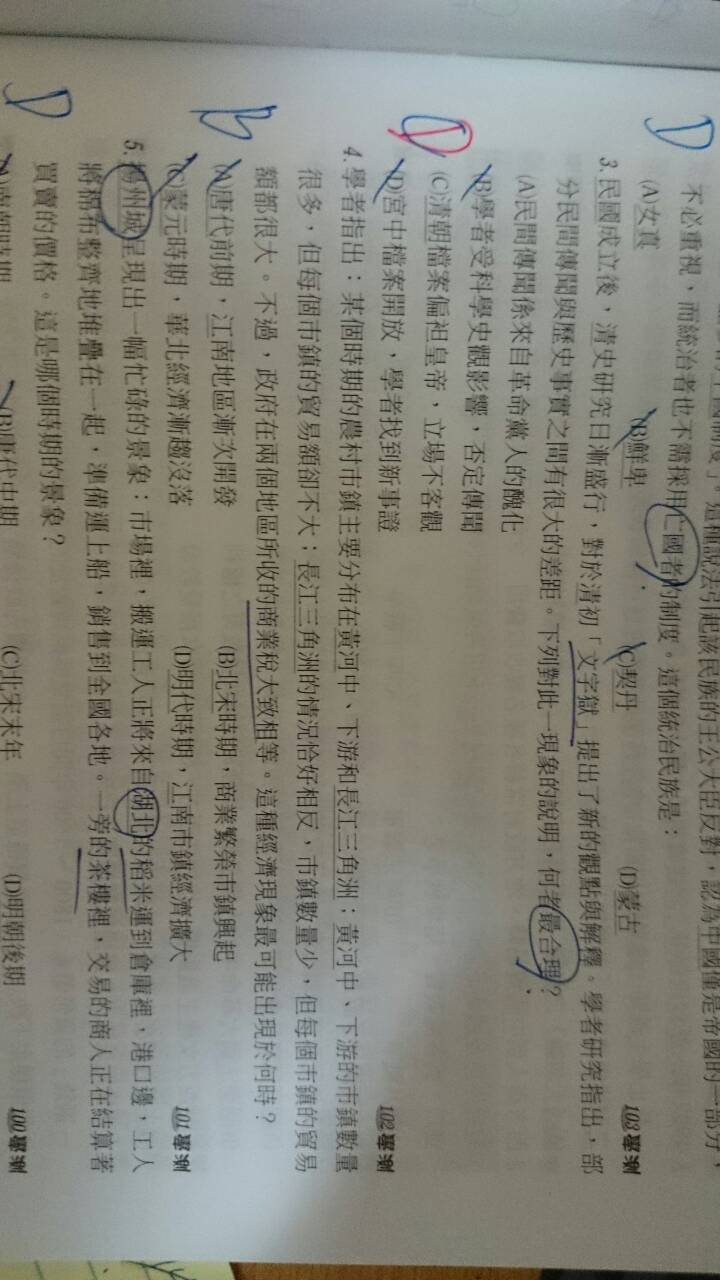 制度」。這種說法引起該民族的王公大臣反對，認為中國僅是帝國的一部分，
不必重視，而統治者也不需採用亡國者的制度。這個統治民族是：
D
(A)女真 (B)鮮卑 (C)契丹 (D)蒙古 103
3.民國成立後，清史研究日漸盛行，對於清初「文字獄」提出了新的觀點與解釋。學者研究指出，部
分民間傳聞與歷史事實之間有很大的差距。下列對此一現象的說明，何者最合理？
(A)民間傳聞係來自革命黨人的醜化
(B)學者受科學史觀影響，否定傳聞
(C)清朝檔案偏袒皇帝，立場不客觀
(D)宮中檔案開放，學者找到新事證 102
4.學者指出：某個時期的農村市鎮主要分布在黃河中、下游和長江三角洲；黃河中、下游的市鎮數量
很多，但每個市鎮的貿易額卻不大；長江三角洲的情況恰好相反，市鎮數量少，但每個市鎮的貿易
額都很大。不過，政府在兩個地區所收的商業稅大致相等。這種經濟現象最可能出現於何時？
B
(A)唐代前期，江南地區漸次開發 (B)北宋時期，商業繁榮市鎮興起
(C)蒙元時期，華北經濟漸趨沒落 (D)明代時期，江南市鎮經濟擴大 101
5.揚州城呈現出一幅忙碌的景象：市場裡，搬運工人正將來自湖北的稻米運到倉庫裡，港口邊，工人
將棉布整齊地堆疊在一起，準備運上船，銷售到全國各地。一旁的茶樓裡，交易的商人正在結算著
買賣的價格。這是哪個時期的景象？
D
(B)唐代中期 (C)北宋末年 (D)明朝後期 100